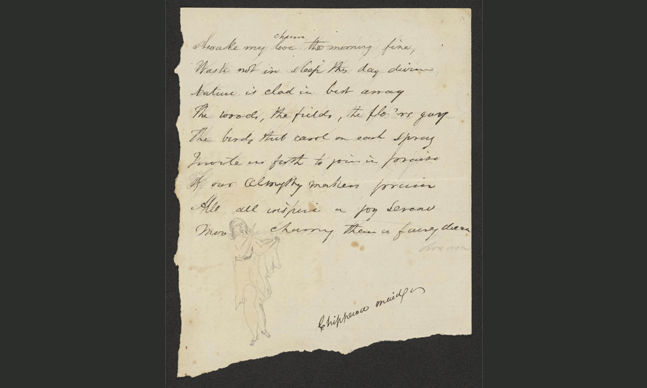 charm
Awake my love the morning fine,
Waste not in sleep this day divine
Nature is clad in best array
The woods, the fields, the flo'rs gay
The birds that carol on each spray
Invite us forth to join in praise
Of our Almyty makers
All all inspire a joy serene
More charmy than a fairy
Chippewa maid